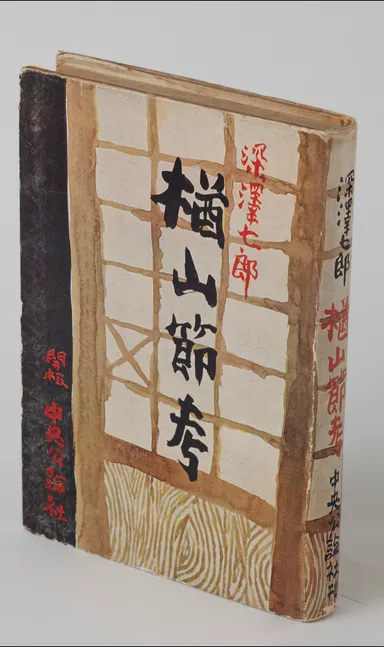 深澤七郎
楢山節考
開板 中央公論社
深澤七郎
楢山節考
中央公論社刊